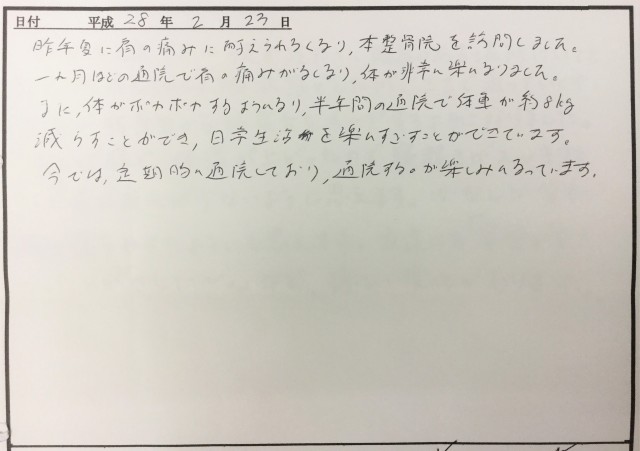 日付 平成 28 年 2 月 23 日
昨年夏に肩の痛みに耐えられなくなり,本整骨院を訪問しました。
一ヵ月ほどの通院で肩の痛みがなくなり,体が非常に楽になりました。
また,体がポカポカするようになり,半年間の通院で体重が約8kg
減らすことができ,日常生活を楽にすごすことができています。
今では,定期的に通院しており,通院するのが楽しみになっています。